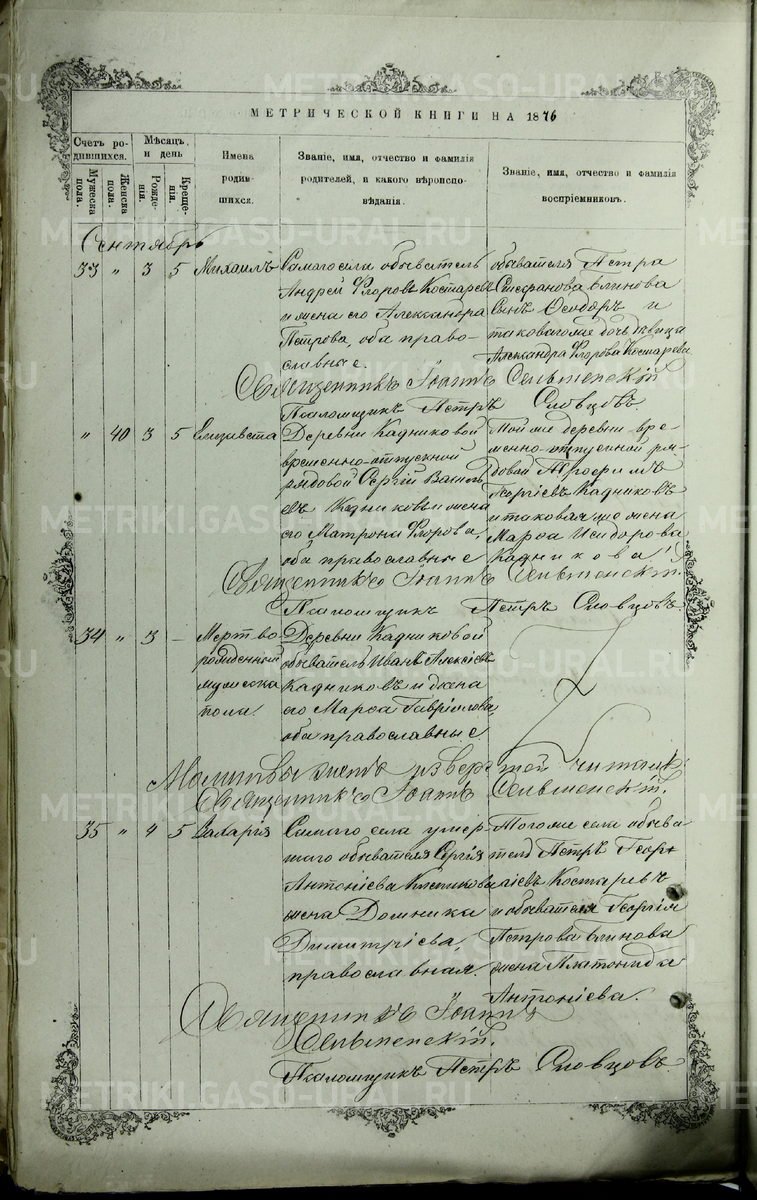 МЕТРИЧЕСКОЙ КНИГИ НА 1876
Счетъ ро-
дившихся.
Мужеска
пола.
Женска
пола.
Мѣсяцъ
и день
Рожде-
нія.
Креще-
нія.
Имена
родив-
шихся.
Званіе, имя, отчество и фамилія
родителей, и какого вѣроиспо-
вѣданія.
Званіе, имя, отчество и фамилія
воспріемниковъ.
Сентябрь
33 " 3 5 Михаилъ
Самаго села обыватель
Андрей Флоровъ Костаревъ
и жена его Александра
Петрова, оба право-
славные.
обывателя Петра
Стефанова Блинова
сынъ Ѳеодоръ и
таковагоже дочь девица
Александра Флорова Костарева
Священникъ Іоаннъ
Псаломщикъ Петръ Словцовъ.
" 40 3 5 Елизавета
Деревни Кадниковой
временно-отпускной
рядовой Сергій Василь
евъ Кадниковъ и жена
его Матрона Флорова,
оба православные
Тойже деревни вре-
менно-отпускной ря
довой
Георгіевъ Кадниковъ
и таковая же жена
Марѳа Исидорова
Кадникова.
Священникъ Іоаннъ
Псаломщикъ Петръ Словцовъ.
34 " 3 -
Мертво
рожденной
мужеска
пола.
Деревни Кадниковой
обыватель Иванъ Алексіевъ
Кадниковъ и жена
его Марѳа Гавріилова
оба православные
Молитвы читалъ
Священникъ Іоаннъ
35 " 4 5 Валерія
Самаго села умер-
шаго обывателя Сергія
Антоніева
жена Домника
Димитріева,
православная.
Тогоже села обыва
тель Петръ Геор
гіевъ Костаревъ
и обывателя Георгія
Петрова Блинова
жена Платонида
Антоніева.
Священникъ Іоаннъ
Псаломщикъ Петръ Словцовъ
METRIKI.GASO-URAL.RU